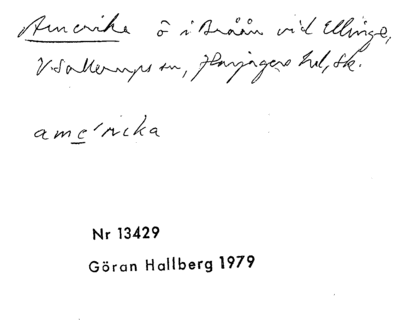 Amerika ö i Braån vid Ellinge,
V Sallerups sn, Harjagers hd, Sk.
ame'rika
Nr 13429
Göran Hallberg 1979